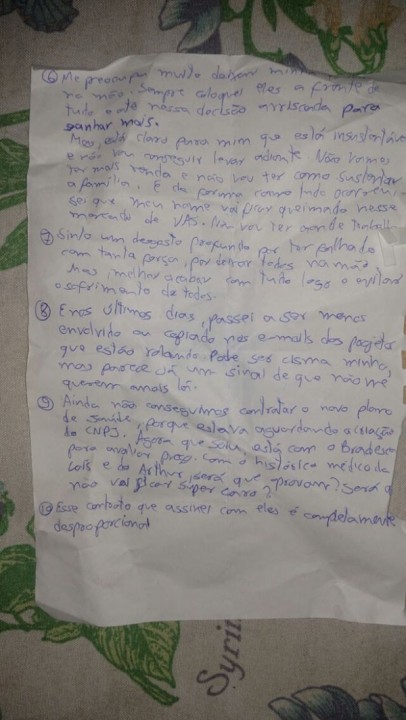 ⑥ Me preocupa muito deixar minh
na mão. Sempre coloquei eles a frente de
tudo e até nossa decisão arriscada para
ganhar mais.
Mas está claro para mim que está insustentáve
e não vou conseguir levar adiante. Não vamos
ter mais renda e não vou ter como sustentar
a família. E da forma como tudo
sei que meu nome vai ficar queimado nesse
mercado de VAS. vou ter onde trabalh
⑦ Sinto um desgosto profundo por ter falhado
com tanta força, por deixar todos na mão.
Mas, melhor acabar com tudo logo e evitar
o sofrimento de todos.
⑧ E nos últimos dias, passei a ser menos
envolvido ou copiado nos e-mails dos projetos
que estão rolando. Pode ser cisma minha,
mas parece já um sinal de que não me
querem mais lá.
⑨ Ainda não conseguimos contratar o novo plano
de saúde, porque estava aguardando a criação
do CNPJ. Agora que saiu, está com o Bradesco
para avaliar Com o histórico médico da
e do Arthur, será que aprovam? Será q
não vai ficar super caro?
⑩ Esse contrato que assinei com eles é completamente
desproporcional
Syri